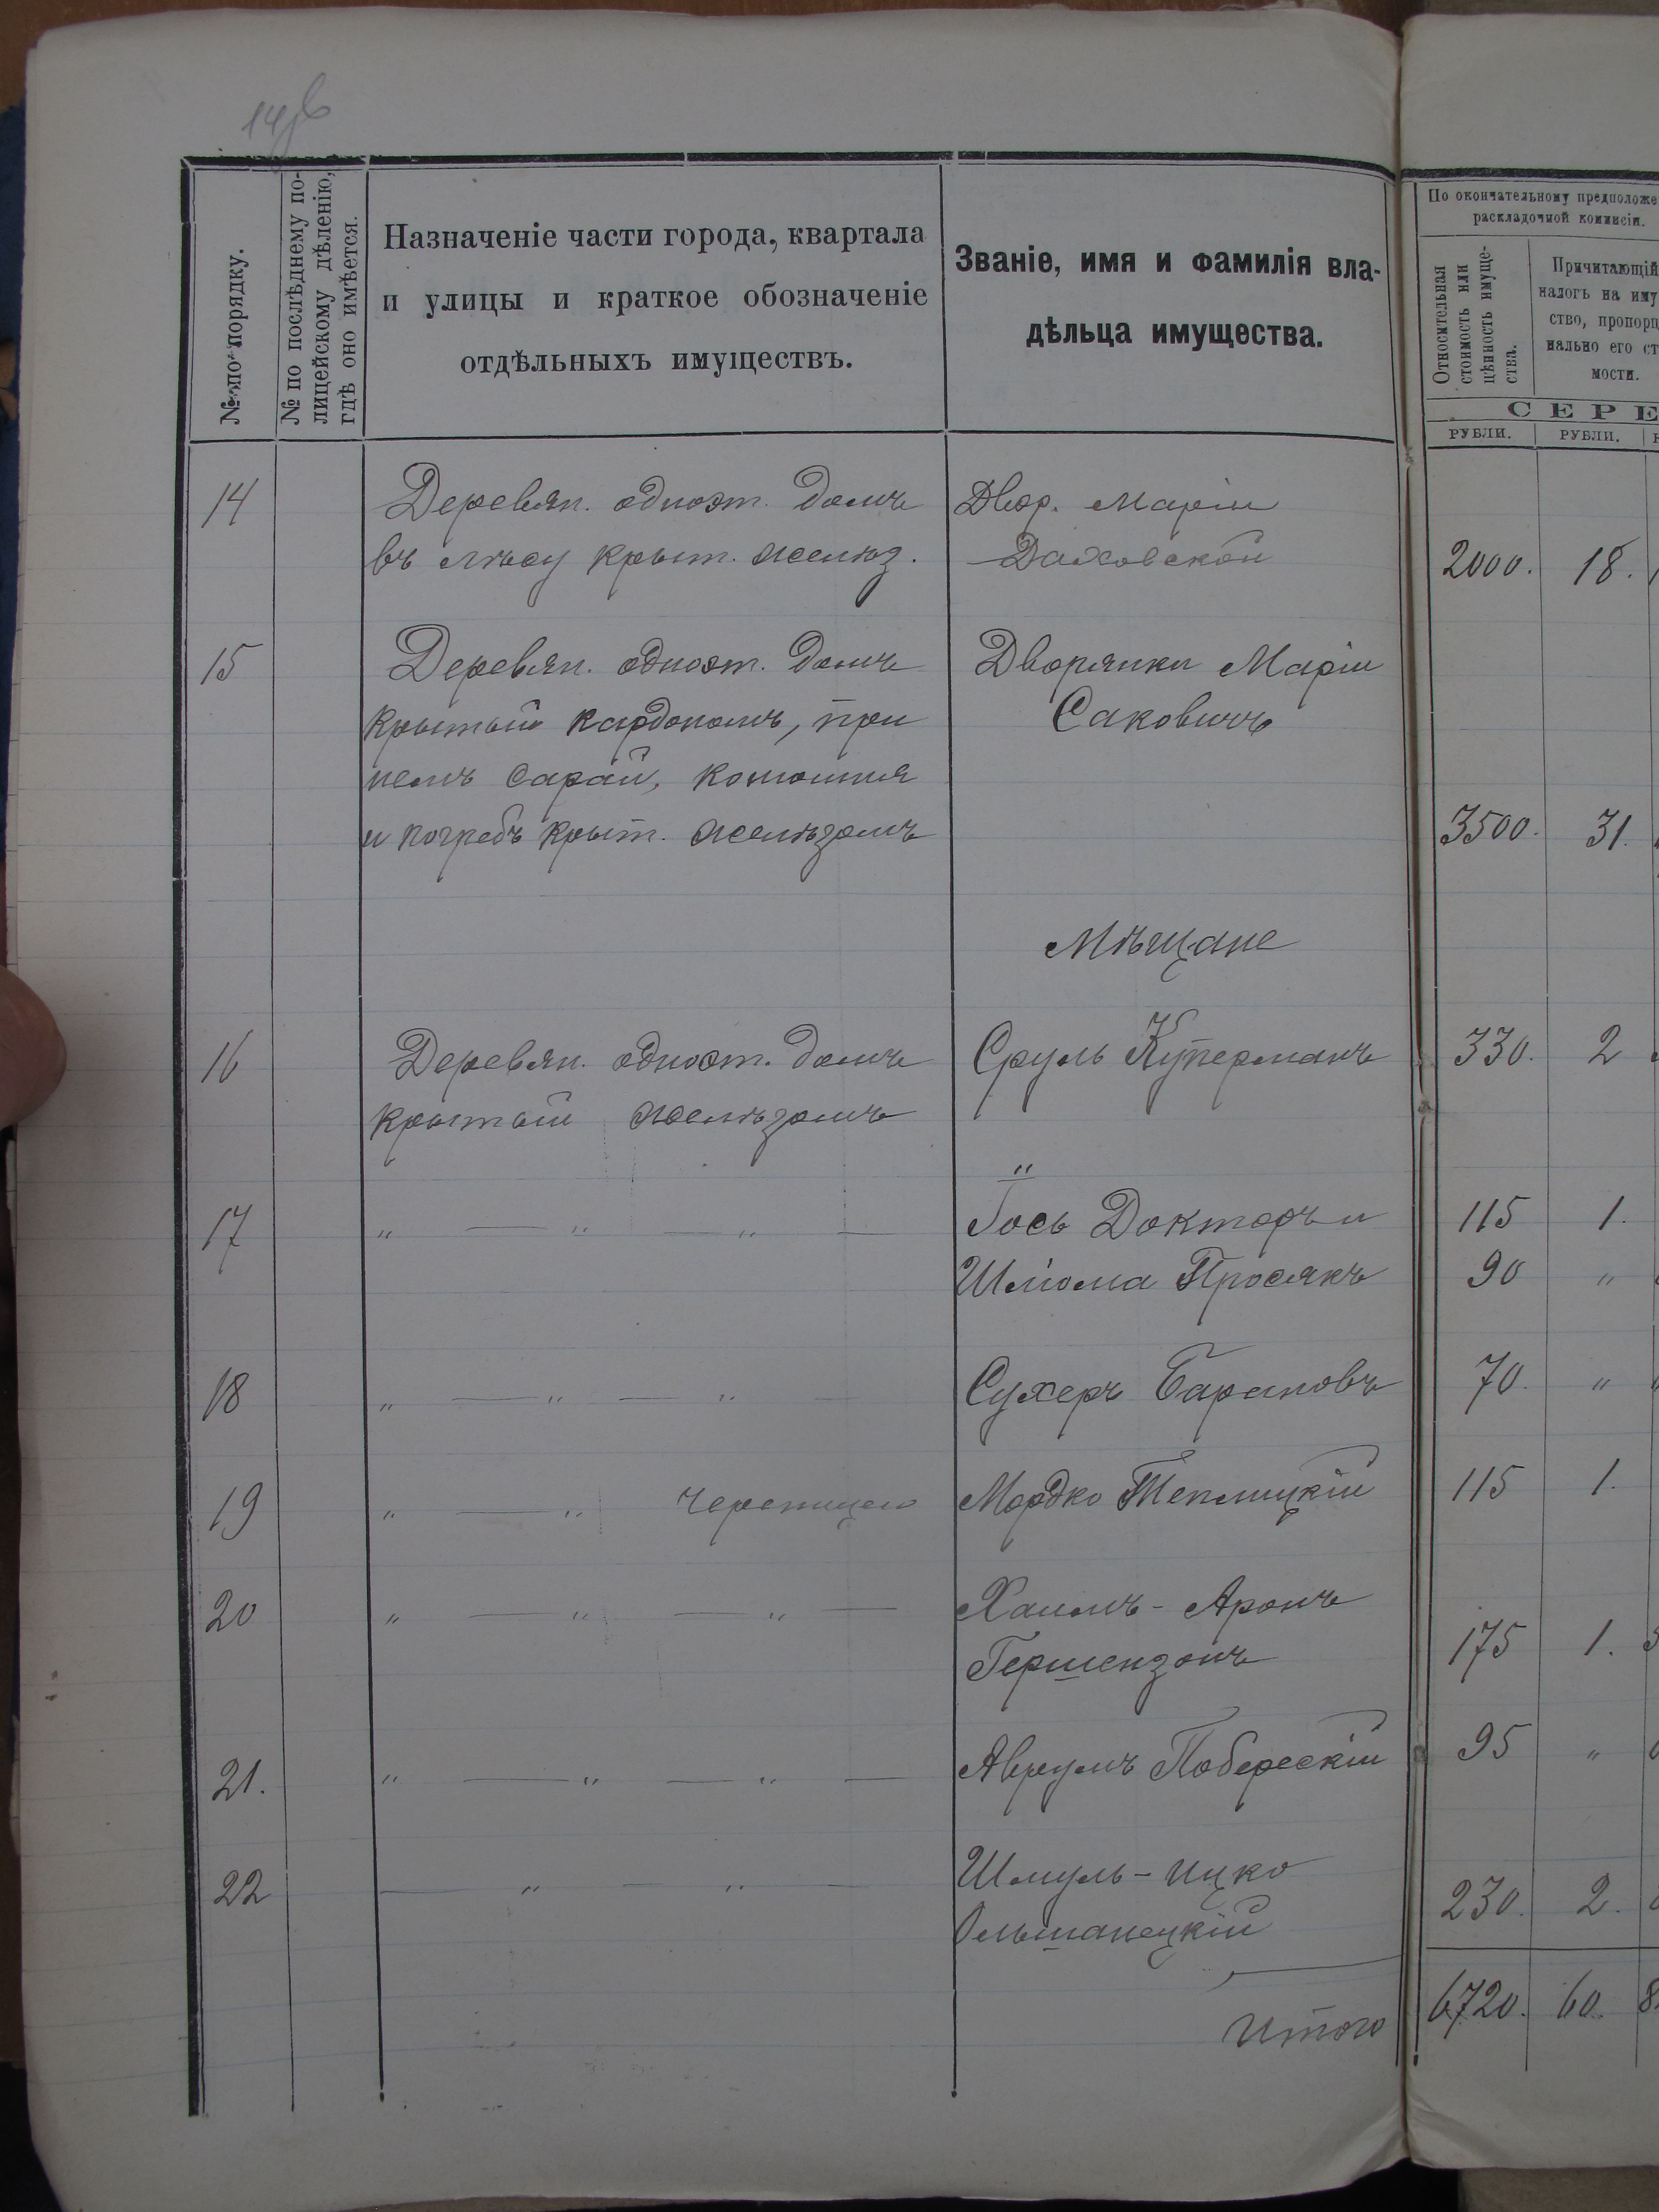 14об
№ по порядку.
№ по послѣднему по-
лицейскому дѣленію,
гдѣ оно имѣется.
Назначеніе части города, квартала
и улицы и краткое обозначеніе
отдѣльныхъ имуществъ.
Званіе, имя и фамилія вла-
дѣльца имущества.
По окончательному предположе
раскладочной коммисіи.
Относительная
стоимость или
цѣнность имуще-
ства.
Причитающій
налогъ на иму
ство, пропорц
нально его ст
мости.
СЕРЕ
РУБЛИ. РУБЛИ.
14 Деревян. одноэт. домъ Двор. Маріи
въ лѣсу крыт. желѣз. Даховской 2000. 18.
15 Деревян. одноэт. домъ Дворянки Маріи
крытый кардономъ, при Саковичъ
немъ сарай, конюшня
и погребъ крыт. желѣзомъ 3500. 31.
Мѣщане
16 Деревян. одноэт. домъ Сруль Куперманъ 330. 2
крытый желѣзомъ
"
17 " — " — " — Іось Докторъ и 115 1.
Шлiома Просякъ 90 "
18 " — " — " — Сухеръ Барановъ 70. "
19 " — " черепицею Мордко Теплицкій 115 1.
20 " — " — " — Хаимъ-Аронъ
Гершензонъ 175 1.
21. " — " — " — Аврумъ Поберескій 95 "
22 — " — " — Шмуль-Ицко
Ольшанецкій 230. 2.
Итого 6720. 60.